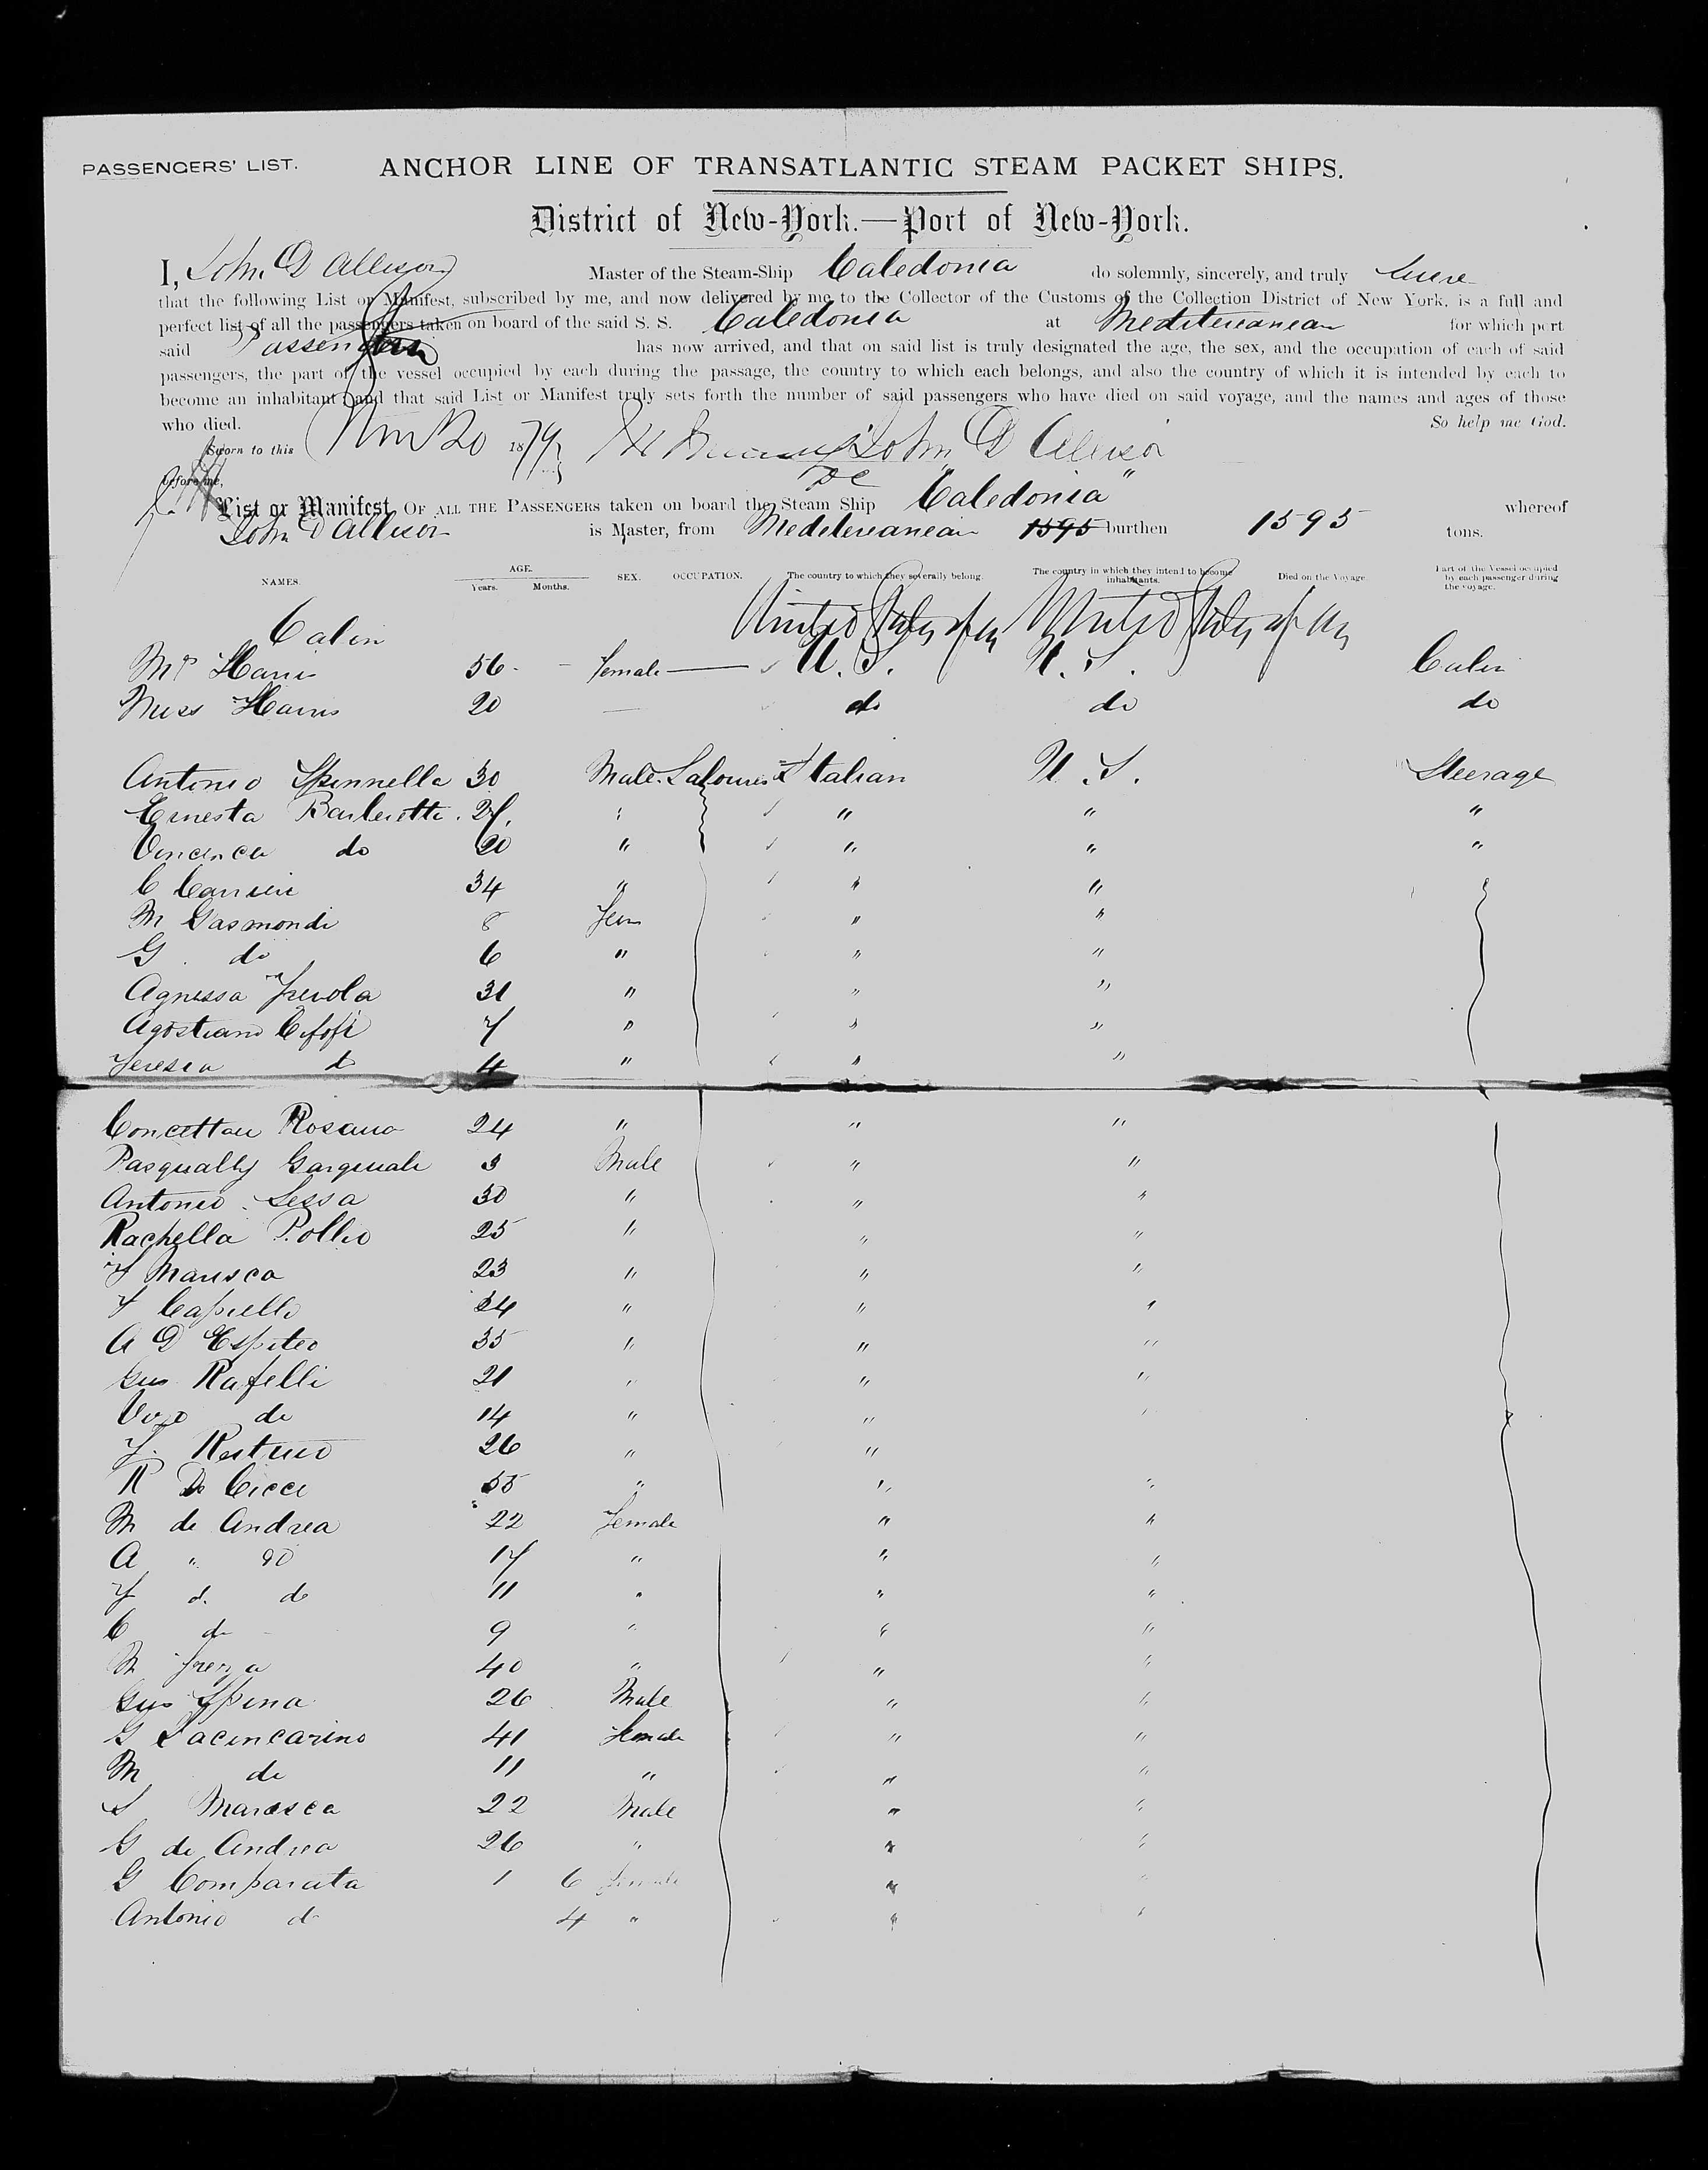 PASSENGERS' LIST. ANCHOR LINE OF TRANSATLANTIC STEAM PACKET SHIPS.
District of New-York.—Port of New-York.
I, John D Allison Master of the Steam-Ship Caledonia do solemnly, sincerely, and truly
that the following List or Manifest, subscribed by me, and now delivered by me to the Collector of the Customs of the Collection District of New York, is a full and
perfect list of all the passengers taken on board of the said S. S. Caledonia at Mediterranean for which port
said Passengers has now arrived, and that on said list is truly designated the age, the sex, and the occupation of each of said
passengers, the part of the vessel occupied by each during the passage, the country to which each belongs, and also the country of which it is intended by each to
become an inhabitant; and that said List or Manifest truly sets forth the number of said passengers who have died on said voyage, and the names and ages of those
who died. So help me God.
Sworn to this 20 1879 John D Allison
before me,
List or Manifest OF ALL THE PASSENGERS taken on board the Steam Ship "Caledonia" whereof
John D Allison is Master, from Mediterranean 1595 burthen 1595 tons.
NAMES. AGE. Years. Months. SEX. OCCUPATION. The country to which they severally belong. The country in which they intend to become inhabitants. Died on the Voyage. Part of the Vessel occupied by each passenger during the voyage.
Cabin United States of Am United States of Am
Mrs Harris 56 - female U.S. U.S. Cabin
Miss Harris 20 — do do do
Antonio Spinnella 30 Male Labourer Italian U.S. Steerage
Ernesta Barberette 27 " " " "
Vincenca do 20 " " " "
C 34 " " "
M Gasmondi 8 Fem " "
G. do 6 " " "
Agnessa 31 " " "
Agostiano 7 " " "
Teresia d 4 " " "
Concettau Rosano 24 " " "
Pasqually Gargiuale 3 Male " "
Antonio Sessa 30 " " "
Rachella Pollio 25 " " "
F Maresca 23 " " "
F Capielli 34 " " "
A D Espiteo 35 " " "
Gus Rafelli 21 " " "
do 14 " " "
F. 26 " "
R De Cicci 55 " " "
M de Andrea 22 Female " "
A " do 17 " " "
F d. do 11 " " "
C do 9 " " "
M 40 " " "
Gus Spina 26 Male " "
G Lacincarino 41 Female " "
M do 11 " " "
S Maresca 22 Male " "
G de Andrea 26 " " "
G Comparata 1 6 female " "
Antonio d 4 " " "